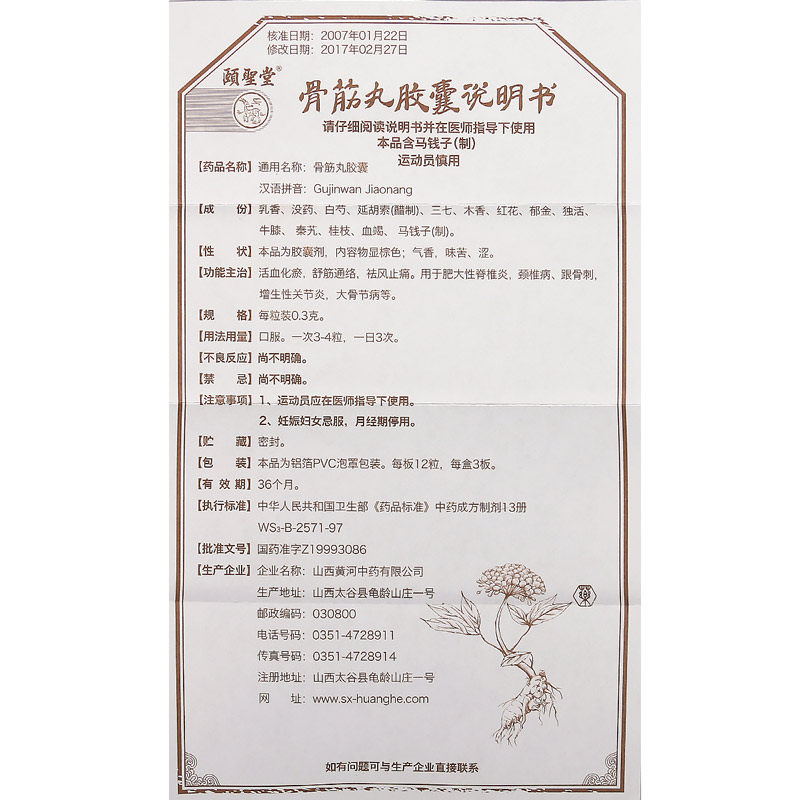 核准日期：2007年01月22日
修改日期：2017年02月27日
頤聖堂®
骨筋丸胶囊说明书
请仔细阅读说明书并在医师指导下使用
本品含马钱子(制)
运动员慎用
【药品名称】通用名称：骨筋丸胶囊
汉语拼音：Gujinwan Jiaonang
【成 份】乳香、没药、白芍、延胡索(醋制)、三七、木香、红花、郁金、独活、
牛膝、秦艽、桂枝、血竭、马钱子(制)。
【性 状】本品为胶囊剂，内容物显棕色；气香，味苦、涩。
【功能主治】活血化瘀，舒筋通络，祛风止痛。用于肥大性脊椎炎，颈椎病、跟骨刺，
增生性关节炎，大骨节病等。
【规 格】每粒装0.3克。
【用法用量】口服。一次3-4粒，一日3次。
【不良反应】尚不明确。
【禁 忌】尚不明确。
【注意事项】1、运动员应在医师指导下使用。
2、妊娠妇女忌服，月经期停用。
【贮 藏】密封。
【包 装】本品为铝箔PVC泡罩包装。每板12粒，每盒3板。
【有 效 期】36个月。
【执行标准】中华人民共和国卫生部《药品标准》中药成方制剂13册
WS₃-B-2571-97
【批准文号】国药准字Z19993086
【生产企业】企业名称：山西黄河中药有限公司
生产地址：山西太谷县龟龄山庄一号
邮政编码：030800
电话号码：0351-4728911
传真号码：0351-4728914
注册地址：山西太谷县龟龄山庄一号
网 址：www.sx-huanghe.com
如有问题可与生产企业直接联系